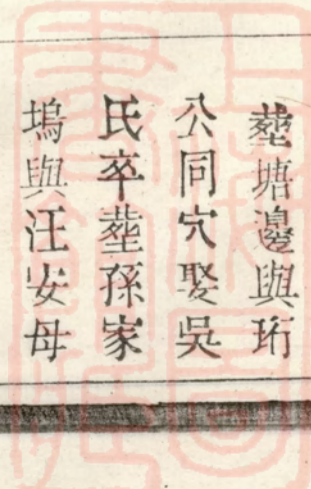 塟塘邉與珩
公同穴娶吳
氏卒塟孫家
塢與汪安母